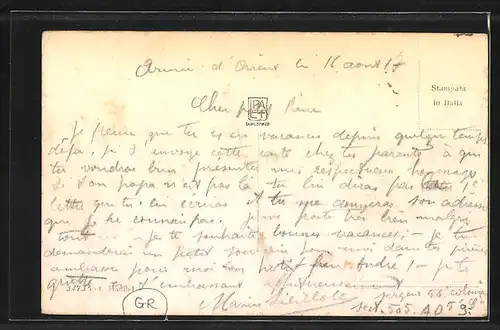 Armée d'Orient le 16 aout 17
Stampata
in Italia
Cher petit Pierre
Je pense que tu es en vacances depuis quelque temps
déja, je t'envoye cette carte chez tes parents à qui
tu voudras bien présenter mes respectueux hommages
Si ton papa n'est pas là tu lui diras
lettre que tu lui écriras et tu me donneras son adresse
que je ne connais pas. Je me porte très bien malgré
tout — je te souhaite bonnes vacances — je te
demanderai un petit souvenir pour moi dans tes prières
embrasse pour moi ton petit frère André! — je te
quitte en t'embrassant affectueusement
Marius
GR
sect. 505 A.O